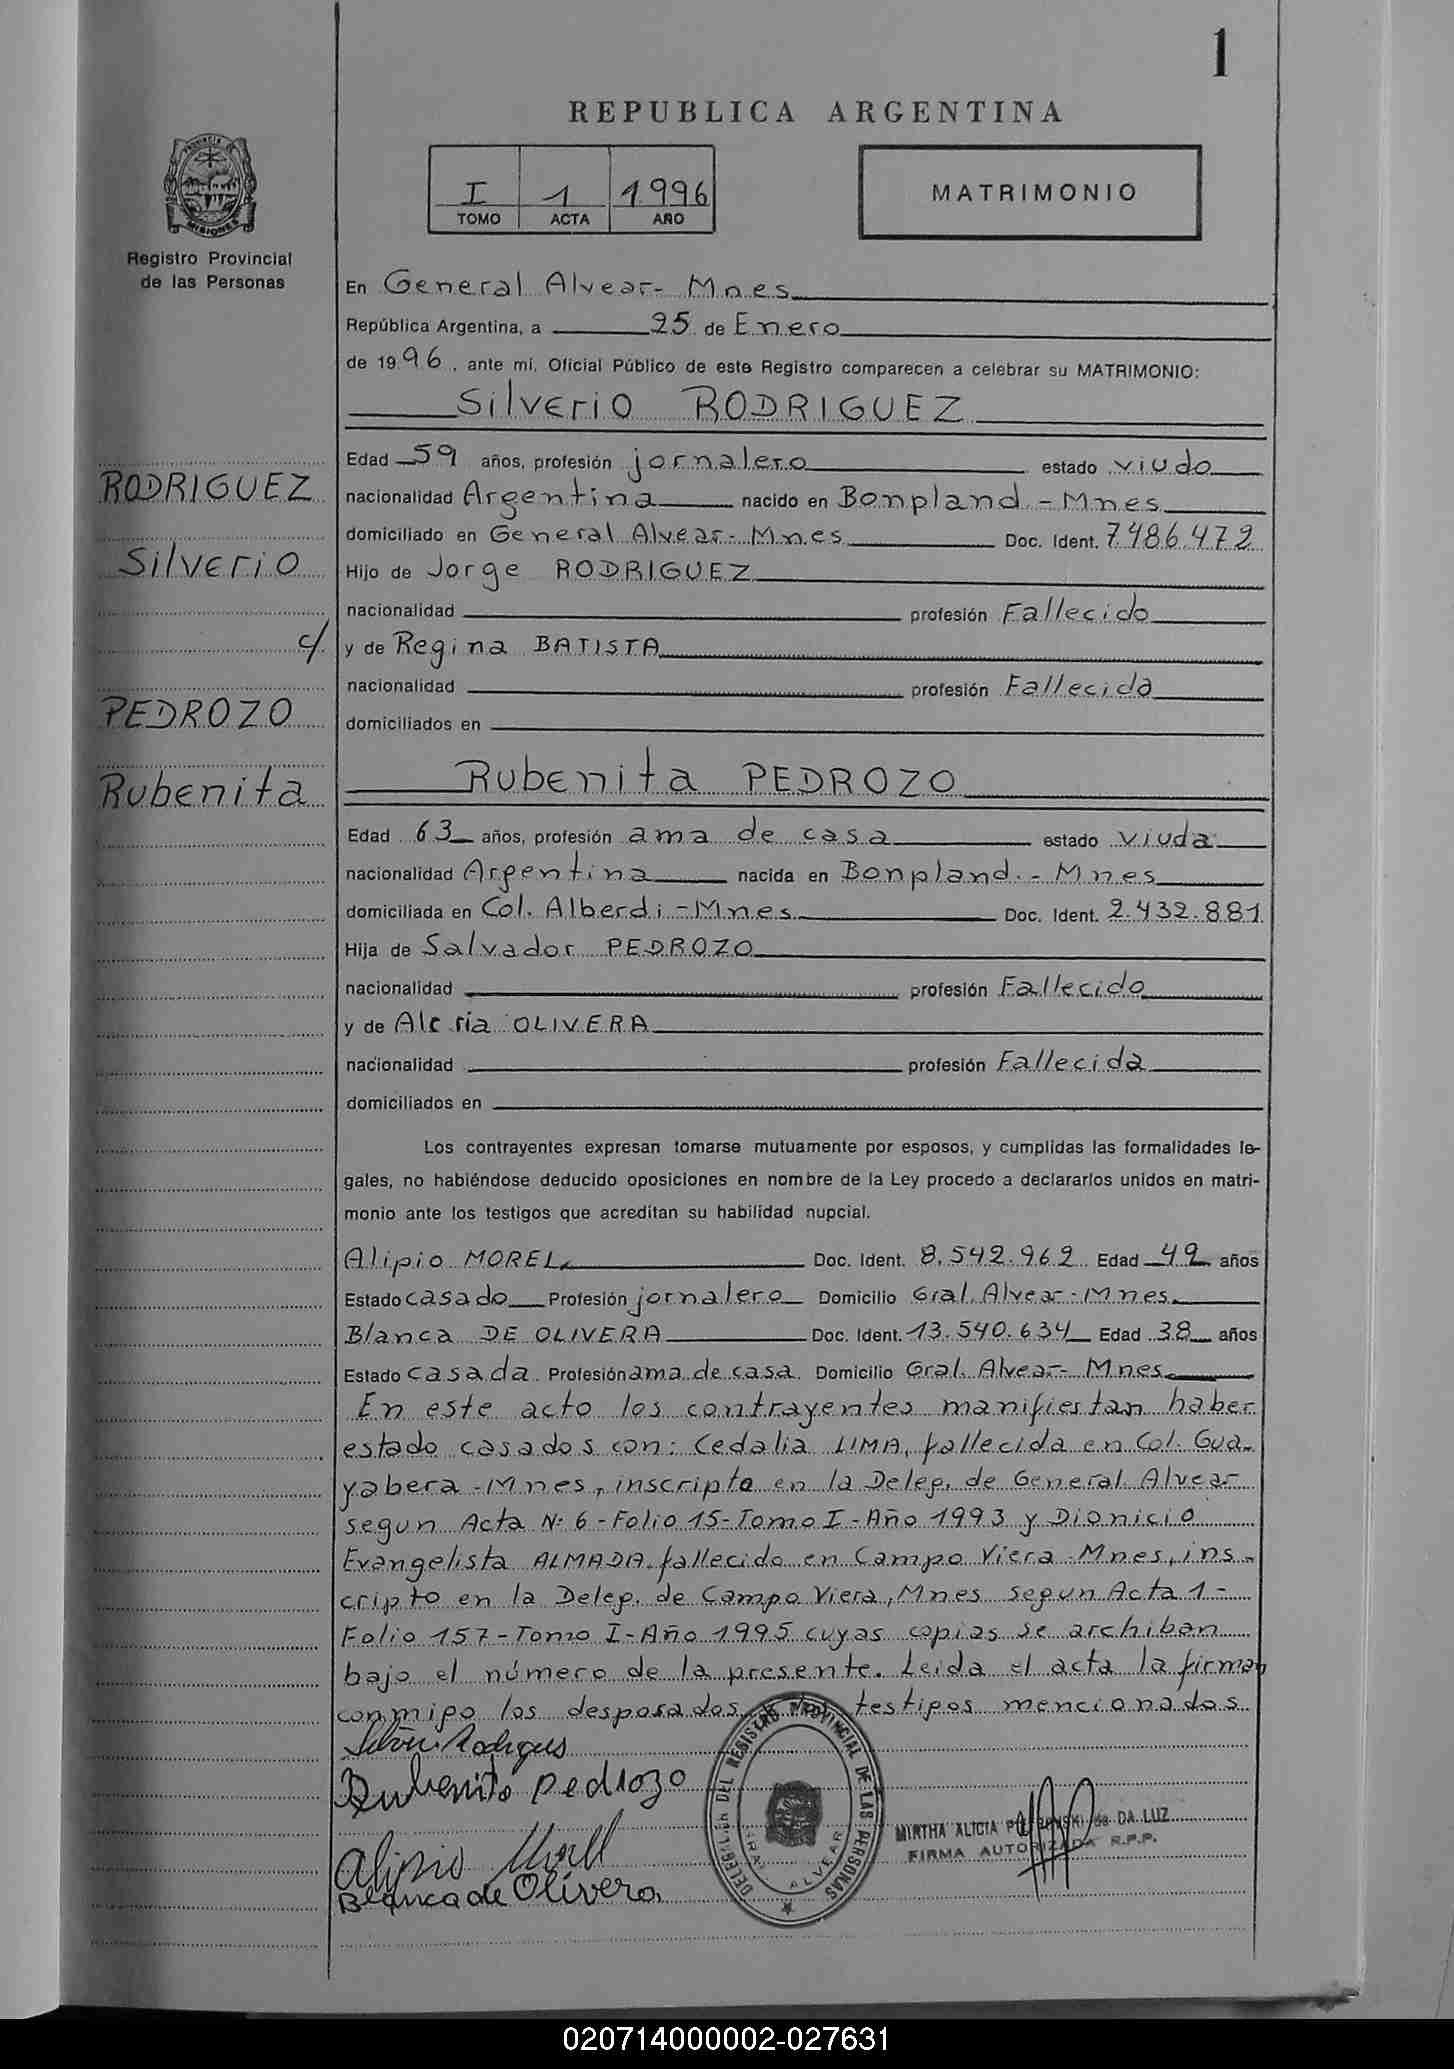 1
REPUBLICA ARGENTINA
I 1 1.996
TOMO ACTA AÑO
MATRIMONIO
PROVINCIA DE
MISIONES
Registro Provincial
de las Personas
En General Alvear- Mnes
República Argentina, a 25 de Enero
de 1996, ante mí, Oficial Público de este Registro comparecen a celebrar su MATRIMONIO:
Silverio RODRIGUEZ
Edad 59 años, profesión jornalero estado viudo
RODRIGUEZ
nacionalidad Argentina nacido en Bonpland - Mnes
domiciliado en General Alvear- Mnes Doc. Ident. 7.486.472
Silverio
Hijo de Jorge RODRIGUEZ
nacionalidad profesión Fallecido
c/
y de Regina BATISTA
nacionalidad profesión Fallecida
PEDROZO
domiciliados en
Rubenita
Rubenita PEDROZO
Edad 63 años, profesión ama de casa estado viuda
nacionalidad Argentina nacida en Bonpland.- Mnes
domiciliada en Col. Alberdi -Mnes Doc. Ident. 2.432.881
Hija de Salvador PEDROZO
nacionalidad profesión Fallecido
y de OLIVERA
nacionalidad profesión Fallecida
domiciliados en
Los contrayentes expresan tomarse mutuamente por esposos, y cumplidas las formalidades le-
gales, no habiéndose deducido oposiciones en nombre de la Ley procedo a declararlos unidos en matri-
monio ante los testigos que acreditan su habilidad nupcial.
Alipio MOREL Doc. Ident. 8.542.962 Edad 49 años
Estado casado Profesión jornalero Domicilio Gral. Alvear - Mnes
Blanca DE OLIVERA Doc. Ident. 13.540.634 Edad 38 años
Estado casada Profesión ama de casa Domicilio Gral. Alvear- Mnes
En este acto los contrayentes manifiestan haber
estado casados con: Cedalia LIMA, fallecida en Col. Gua-
yabera -Mnes, inscripta en la Deleg. de General Alvear
segun Acta Nº 6 - Folio 15- Tomo I - Año 1993 y Dionicio
Evangelista ALMADA fallecido en Campo Viera -Mnes, ins-
cripto en la Deleg. de Campo Viera, Mnes segun Acta 1-
Folio 157 - Tomo I - Año 1995 cuyas copias se archiban
bajo el número de la presente. Leida el acta la firman
conmigo los desposados testigos mencionados
Rodrigues
Rubenita Pedrozo
Alipio Morel
Blanca de Olivera
DEL REGISTRO PROVINCIAL DE LAS PERSONAS
GRAL ALVEAR
MIRTHA ALICIA DE DA LUZ
FIRMA AUTORIZADA R.P.P.
020714000002-027631